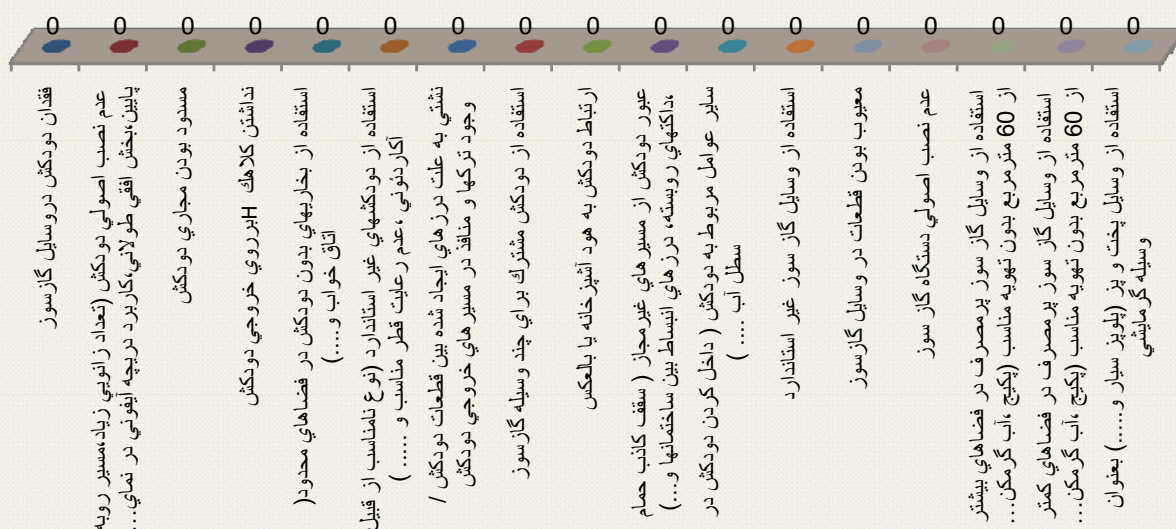 0 0 0 0 0 0 0 0 0 0 0 0 0 0 0 0 0
فقدان دودكش دروسايل گازسوز
عدم نصب اصولي دودكش (تعداد زانويي زياد،مسير روبه
پايين،بخش افقي طولاني،كاربرد دريچه آيفوني در نماي...
مسدود بودن مجاري دودكش
نداشتن كلاهك H برروي خروجي دودكش
استفاده از بخاريهاي بدون دودكش در فضاهاي محدود(
اتاق خواب و....)
استفاده از دودكشهاي غير استاندارد (نوع نامناسب از قبيل
آكاردئوني ،عدم رعايت قطر مناسب و ..... )
نشتي به علت درزهاي ايجاد شده بين قطعات دودكش /
وجود تركها و منافذ در مسيرهاي خروجي دودكش
استفاده از دودكش مشترك براي چند وسيله گازسوز
ارتباط دودكش به هود آشپزخانه يا بالعكس
عبور دودكش از مسيرهاي غيرمجاز ( سقف كاذب حمام
،داكتهاي روبسته، درزهاي انبساط بين ساختمانها و...)
ساير عوامل مربوط به دودكش ( داخل كردن دودكش در
سطل آب .... )
استفاده از وسايل گاز سوز غير استاندارد
معيوب بودن قطعات در وسايل گازسوز
عدم نصب اصولي دستگاه گاز سوز
استفاده از وسايل گاز سوز پرمصرف در فضاهاي بيشتر
از 60 مترمربع بدون تهويه مناسب (پكيج ،آب گرمكن...
استفاده از وسايل گاز سوز پرمصرف در فضاهاي كمتر
از 60 مترمربع بدون تهويه مناسب (پكيج ،آب گرمكن...
استفاده از وسايل پخت و پز (پلوپز سيار و.....) بعنوان
وسيله گرمايشي